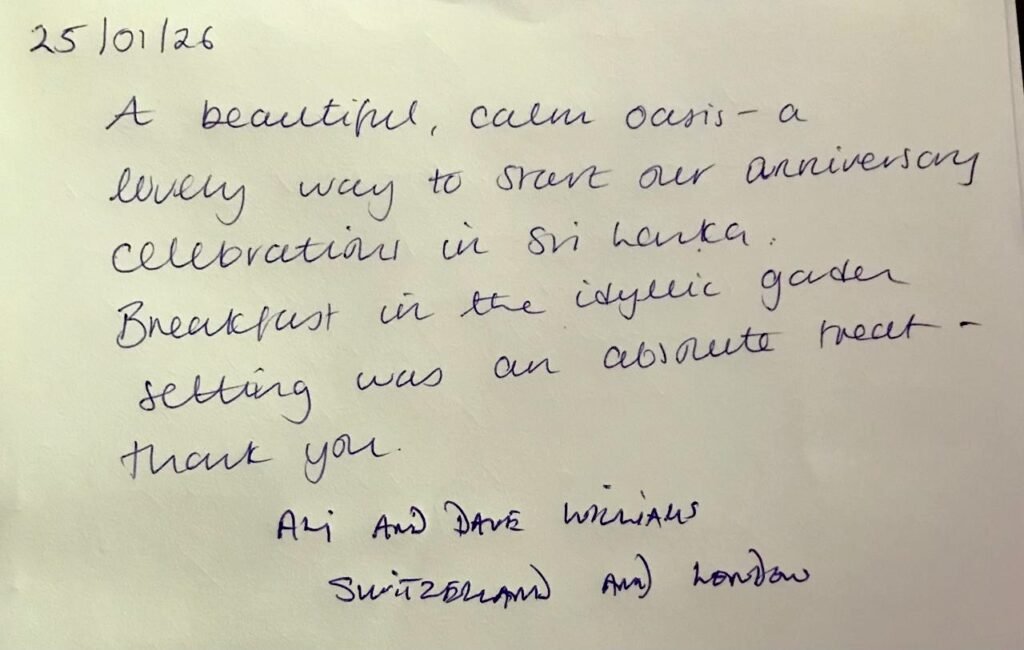 25/01/26
A beautiful, calm oasis - a
lovely way to start our anniversary
celebrations in Sri Lanka.
Breakfast in the idyllic garden
setting was an absolute treat -
thank you.
ALI AND DAVE WILLIAMS
SWITZERLAND AND LONDON